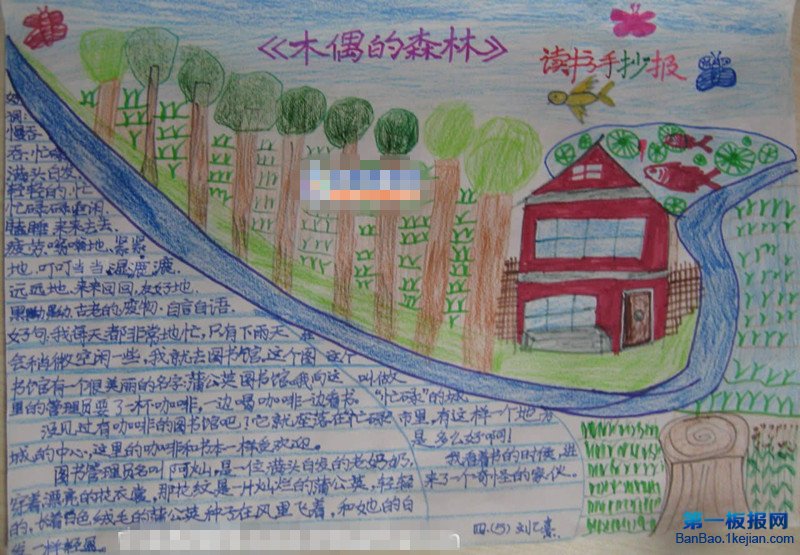 《木偶的森林》
读书手抄报
好
词：
慢吞
吞、忙碌
满头白发
轻轻的、忙
忙碌碌、空闲
瞌睡、来来去去、
疲劳、嗡嗡地、紧紧
地、叮叮当当、湿漉漉、
远远地、来来回回、友好地
古老的、宠物、自言自语、
好句：我每天都非常地忙，只有下雨天、
会稍微空闲一些，我就去图书馆，这个图
书馆有一个很美丽的名字：蒲公英图书馆。我向这
里的管理员要了一杯咖啡，一边喝咖啡一边看书。
没见过有咖啡的图书馆吧？它就坐落在忙碌
城的中心，这里的咖啡和书本一样受欢迎。
图书管理员名叫阿灿，是一位满头白发的老奶奶，
穿着漂亮的花衣裳，那花纹是一片灿烂的蒲公英，轻轻
的，长着白色绒毛的蒲公英种子在风里飞着，和她的白
一样轻盈。
这个
叫做
“忙碌”的城
市里，有这样一个地方
是多么好啊！
我看着书的时候，进
来了一个奇怪的家伙。
四、(5) 刘
第一板报网
BanBao.1kejian.com